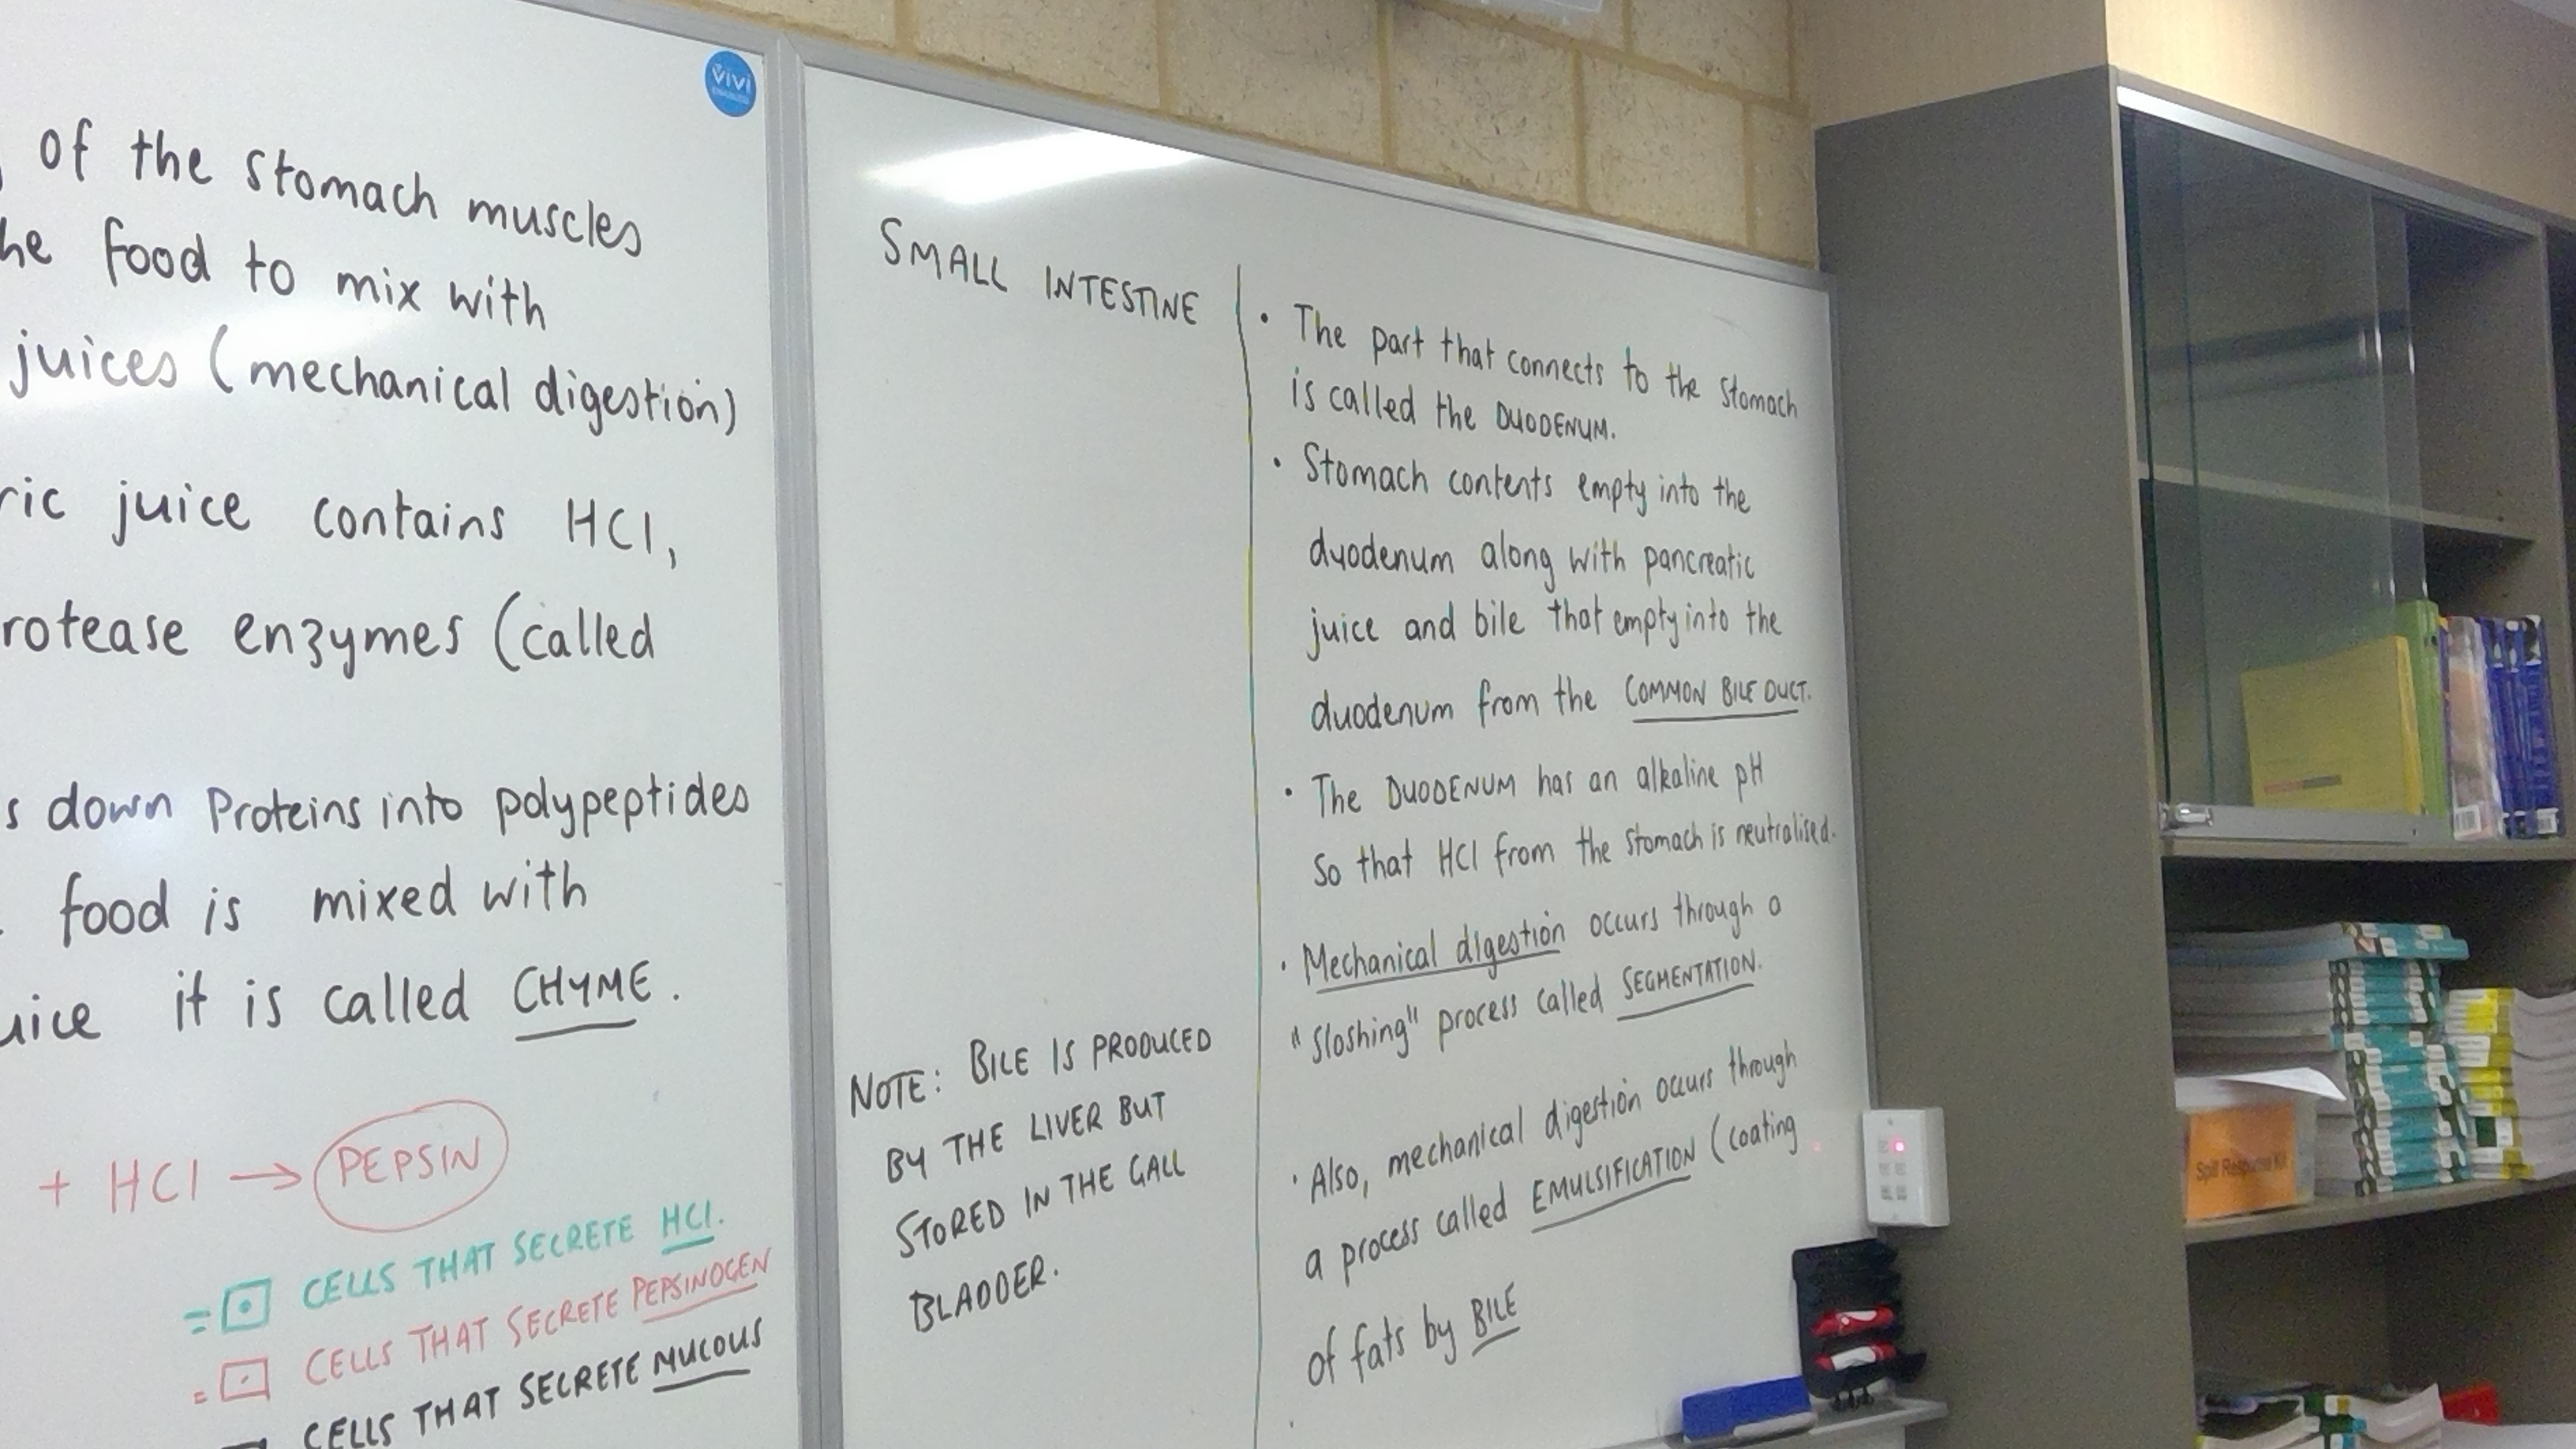 vivi
of the stomach muscles
he food to mix with
juices (mechanical digestion)
ric juice contains HCl,
rotease enzymes (called
s down Proteins into polypeptides
food is mixed with
uice it is called CHYME.
+ HCl → PEPSIN
= CELLS THAT SECRETE HCl.
= CELLS THAT SECRETE PEPSINOGEN
CELLS THAT SECRETE MUCOUS
SMALL INTESTINE
NOTE: BILE IS PRODUCED
BY THE LIVER BUT
STORED IN THE GALL
BLADDER.
• The part that connects to the stomach
is called the DUODENUM.
• Stomach contents empty into the
duodenum along with pancreatic
juice and bile that empty into the
duodenum from the COMMON BILE DUCT.
• The DUODENUM has an alkaline pH
So that HCl from the stomach is neutralised.
• Mechanical digestion occurs through a
"Sloshing" process called SEGMENTATION.
• Also, mechanical digestion occurs through
a process called EMULSIFICATION (coating
of fats by BILE
Spill Response Kit